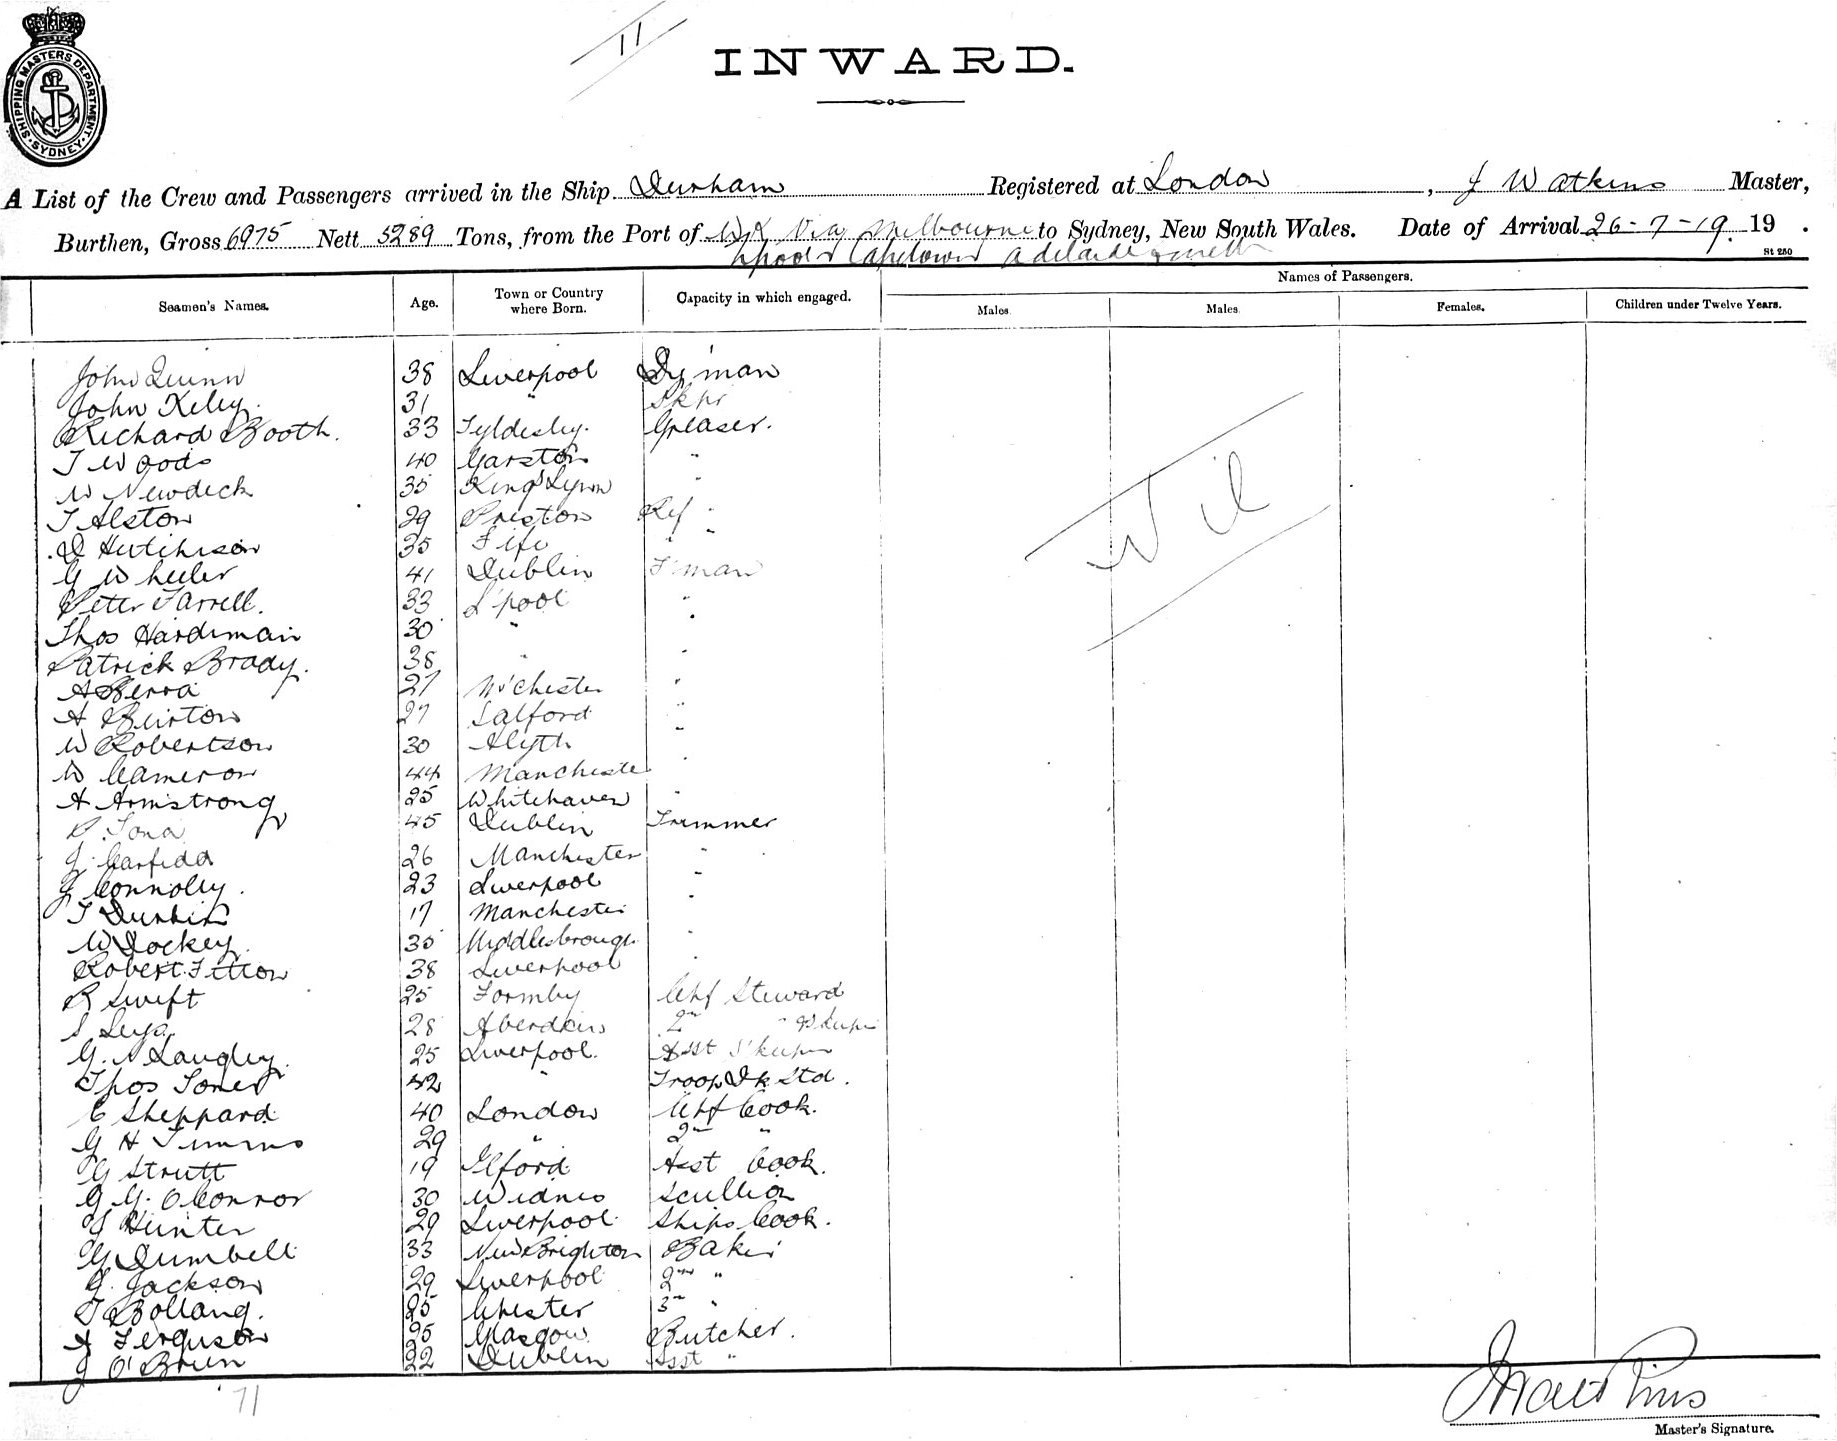 11
INWARD.
SHIPPING MASTERS DEPARTMENT. SYDNEY.
A List of the Crew and Passengers arrived in the Ship Durham Registered at London, J Watkins Master,
Burthen, Gross 6975 Nett 5289 Tons, from the Port of Via Melbourne to Sydney, New South Wales. Date of Arrival 26-7-19. 19 .
Capetown Adelaide
St 250
Names of Passengers.
Seamen's Names. Age. Town or Country where Born. Capacity in which engaged. Males. Males. Females. Children under Twelve Years.
John Quinn 38 Liverpool D'man
John Kiley. 31 " Skpr
Richard Booth. 33 Tyldesley. Greaser.
T Woods 40 Garston "
W Newdeck 35 King's Lynn "
T Alston 29 Preston Ref "
D Hutchison 35 Fife " "
G Wheeler 41 Dublin F'man
Peter Farrell. 33 L'pool "
Thos Hardiman 30 " "
Patrick Brady. 38 " "
A Serra 27 M'chester "
A Burton 27 Salford "
W Robertson 30 Alyth "
W Cameron 44 Manchester "
A Armstrong 25 Whitehaven "
45 Dublin Trimmer
J. 26 Manchester "
J Connolly. 23 Liverpool "
T Durkin 17 Manchester "
W Dockey. 35 Middlesbrough "
Robert Fitton 38 Liverpool "
R Swift 25 Formby Chf Steward
S 28 Aberdeen 2nd "
G. A Langley. 25 Liverpool. Asst S'keeper
Thos Jones 42 " Troop Dk Std.
C Sheppard 40 London Chf Cook.
G H Timms 29 " 2nd "
G Strutt 19 Ilford Asst Cook.
G. G. O'Connor 30 Widnes Scullion
J Hunter 29 Liverpool Ships Cook.
G Dumbell 33 New Brighton Baker
G. Jackson 29 Liverpool 2nd "
T Bolland. 25 Chester 3rd "
A Ferguson 25 Glasgow Butcher.
J O'Brien 22 Dublin Asst "
Nil
71
J Watkins
Master's Signature.